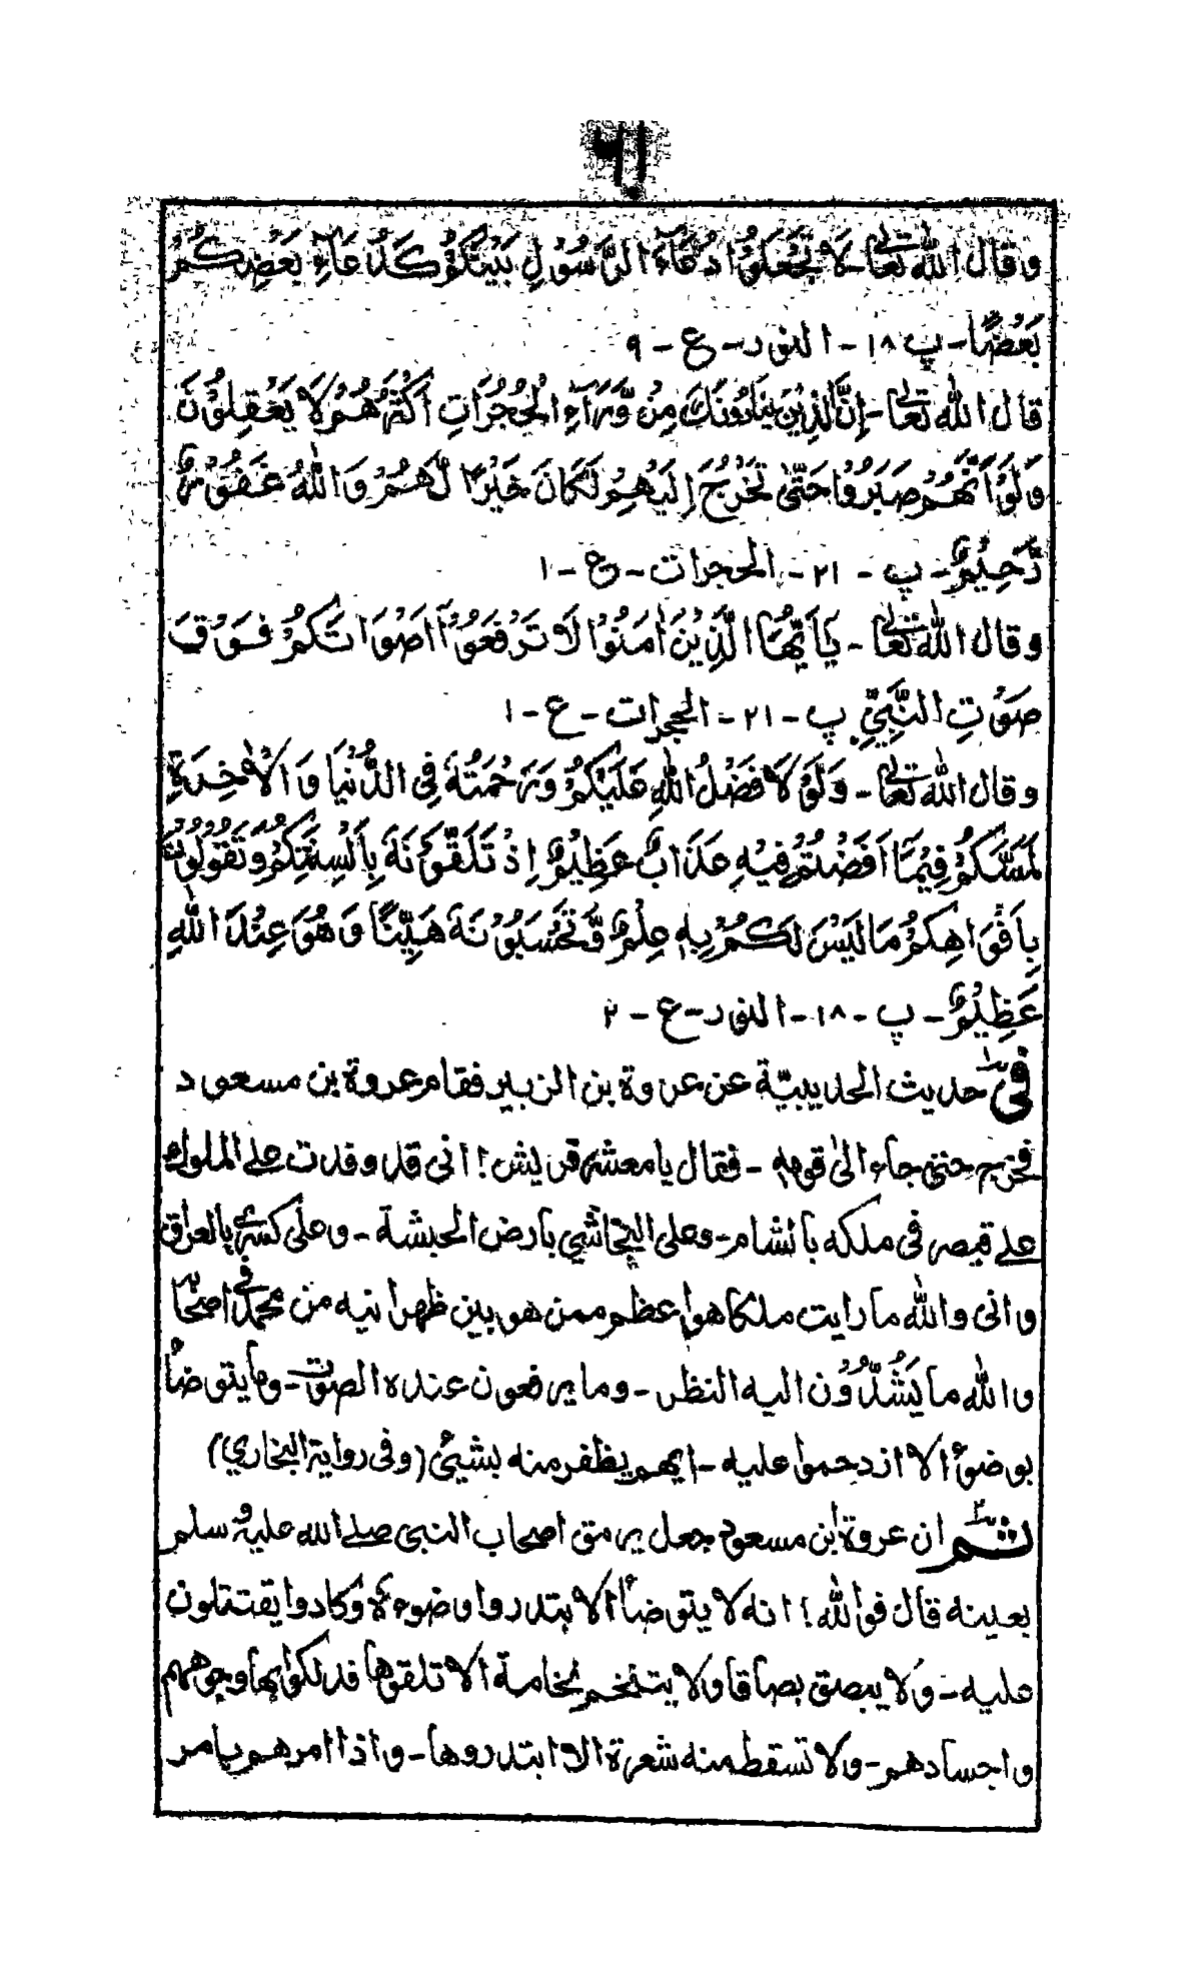 وقال الله تعالى - لَا تَجْعَلُوْا دُعَآءَ الرَّسُوْلِ بَيْنَكُمْ كَدُعَآءِ بَعْضِكُمْ
بَعْضًا - پ ۱۸ - النور - ع - ۹
قال الله تعالى - اِنَّ الَّذِيْنَ يُنَادُوْنَكَ مِنْ وَّرَآءِ الْحُجُرَاتِ اَكْثَرُهُمْ لَا يَعْقِلُوْنَ
وَلَوْ اَنَّهُمْ صَبَرُوْا حَتّٰى تَخْرُجَ اِلَيْهِمْ لَكَانَ خَيْرًا لَّهُمْ وَاللّٰهُ غَفُوْرٌ
رَّحِيْمٌ - پ - ۲۱ - الحجرات - ع - ۱
وقال الله تعالى - يٰاَيُّهَا الَّذِيْنَ اٰمَنُوْا لَا تَرْفَعُوْٓا اَصْوَاتَكُمْ فَوْقَ
صَوْتِ النَّبِيِّ پ - ۲۱ - الحجرات - ع - ۱
وقال الله تعالى - وَلَوْ لَا فَضْلُ اللّٰهِ عَلَيْكُمْ وَرَحْمَتُهٗ فِى الدُّنْيَا وَالْاٰخِرَةِ
لَمَسَّكُمْ فِيْمَآ اَفَضْتُمْ فِيْهِ عَذَابٌ عَظِيْمٌ اِذْ تَلَقَّوْنَهٗ بِاَلْسِنَتِكُمْ وَتَقُوْلُوْنَ
بِاَفْوَاهِكُمْ مَا لَيْسَ لَكُمْ بِهٖ عِلْمٌ وَّتَحْسَبُوْنَهٗ هَيِّنًا وَهُوَ عِنْدَ اللّٰهِ
عَظِيْمٌ - پ - ۱۸ - النور - ع - ۲
فى حديث الحديبيّة عن عروة بن الزبير فقام عروة بن مسعود
فخرج حتى جاء الىٰ قومه - فقال يا معشر قريش! انى قد وفدت على الملوك
على قيصر فى ملكه بالشام - وعلى النجاشي بارض الحبشة - وعلى كسرى بالعراق
وانى والله ما رايت ملكا هو اعظم ممن هو بين ظهرانيه من محمد فى اصحابه
والله ما يَشُدُّوُن اليه النظر - وما يرفعون عنده الصوت - وما يتوضأ
بوضوٴ الا ازدحموا عليه - ايهم يظفر منه بشيئ (وفى رواية البخاري)
ثم ان عروة ابن مسعود جعل يرمق اصحاب النبى صلى الله عليه وسلم
بعينه قال فوالله! انه لا يتوضأ الا ابتدروا وضوءه وكادوا يقتتلون
عليه - ولا يبصق بصاقا ولا يتنخم نخامة الا تلقوها فدلكوا بها وجوههم
واجسادهم - ولا تسقط منه شعرة الا ابتدروها - واذا امرهم بامر